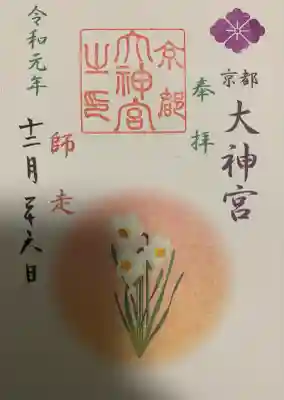 奉拝
京都
大神宮
京都
大神宮
之印
師走
令和元年
十二月二十六日